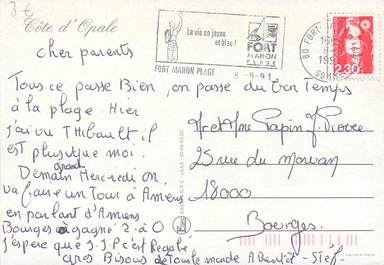 3€
Côte d'Opale
La vie en jaune
et bleu !
FORT
MAHON
PLAGE
FORT MAHON PLAGE
8-8-91
80 FORT
SOMME
2,30
cher parents
Tous ce passe Bien, on passe du Bon Temps
à la plage. Hier
j'ai vu Thibault il
est plus que moi.
Demain Mercredi on
va faire un Tour à Amiens
en parlant d'Amiens
Bourges à gagné 2-à 0
J'espère que J.J.P c'est Régalé
gros Bisous de tous le monde A Bientôt - Stéf.
Mr et Mme Papin J. Pierre
25 rue du
18000
Bourges